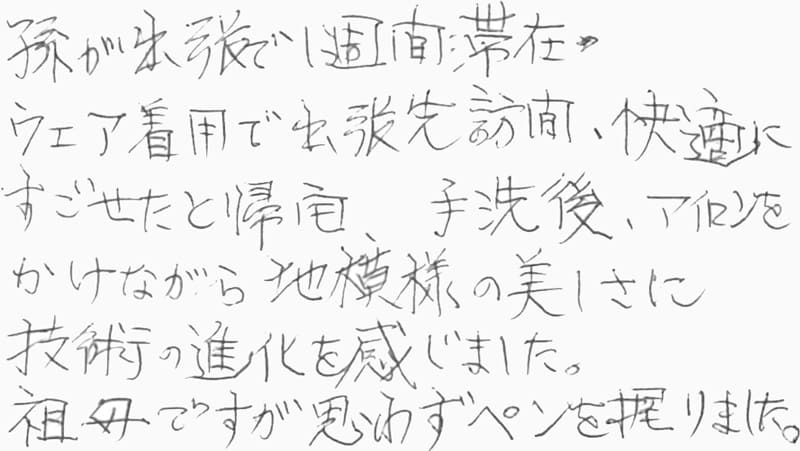 孫が出張で1週間滞在。
ウェア着用で出張先訪問、快適に
すごせたと帰宅、手洗後、アイロンを
かけながら地模様の美しさに
技術の進化を感じました。
祖母ですが思わずペンを握りました。